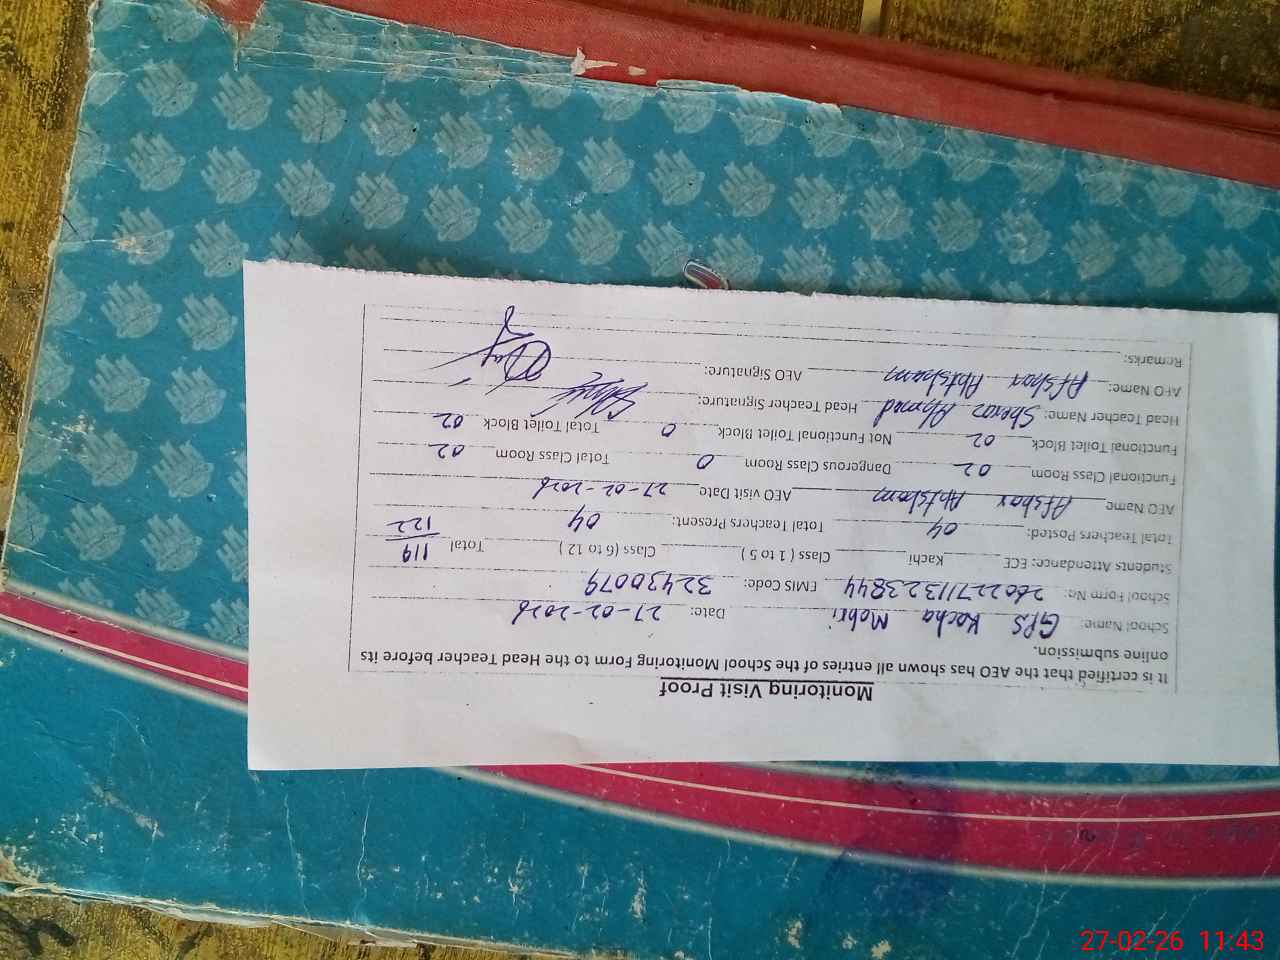 Monitoring Visit Proof
It is certified that the AEO has shown all entries of the School Monitoring Form to the Head Teacher before its
online submission.
School Name: GPS Kacha Mohri Date: 27-02-2026
School Form No: 260227113223844 EMIS Code: 32430079
Students Attendance: ECE Kachi Class ( 1 to 5 ) Class (6 to 12 ) Total 119
122
Total Teachers Posted: 04 Total Teachers Present: 04
AEO Name Afshar Ahtsham AEO visit Date 27-02-2026
Functional Class Room 02 Dangerous Class Room 0 Total Class Room 02
Functional Toilet Block 02 Not Functional Toilet Block 0 Total Toilet Block 02
Head Teacher Name: Sheraz Ahmad Head Teacher Signature:
AEO Name: Afshar Ahtsham AEO Signature:
Remarks:
27-02-26 11:43